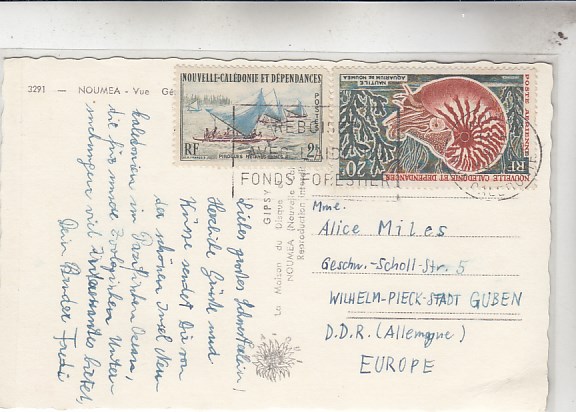 3291 - NOUMEA - Vue Gé
NOUVELLE-CALÉDONIE ET DÉPENDANCES
POSTES
RF
2F
NAUTILE
AQUARIUM DE NOUMÉA
POSTE AÉRIENNE
RF
20F
NOUVELLE CALÉDONIE ET DÉPENDANCES
REBOIS
FONDS FORESTIER
GIPSY
La Maison du Disque
NOUMEA (Nouvelle
Reproduction
Liebes großes Schwesterlein!
Herzliche Grüße und
Küsse sendet Dir von
der schönen Insel Neu
kaledonien im Pazifischen Ozean,
die für unsere Zoologischen Unter
suchungen viel Interessantes bietet,
Dein Bruder Fredi
Mme.
Alice Miles
Geschw.-Scholl-Str. 5
WILHELM-PIECK-STADT GUBEN
D.D.R. (Allemagne)
EUROPE